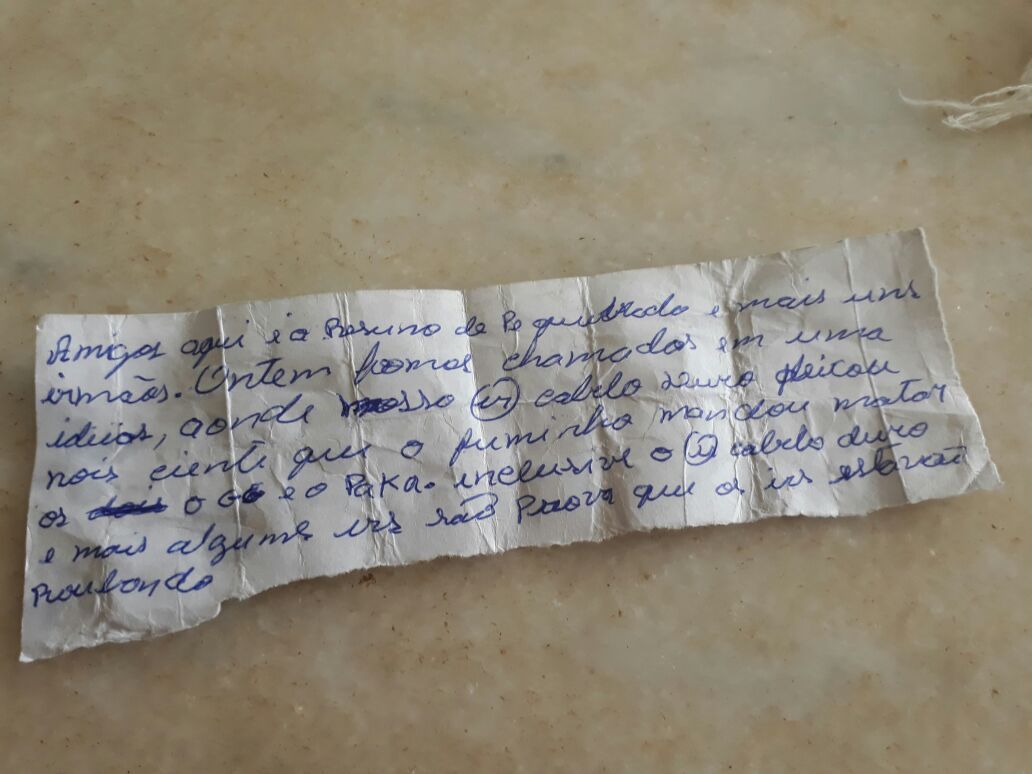 Amigos aqui é o Resumo da Pequebrada e mais uns
irmãos. Ontem fomos chamados em uma
ideias, aonde nosso (ir) cabelo duro deixou
nois ciente que o fuminho mandou matar
os dois o GG e o Paka. inclusive o (ir) cabelo duro
e mais algums irs são Prova que os irs estavão
Roubando